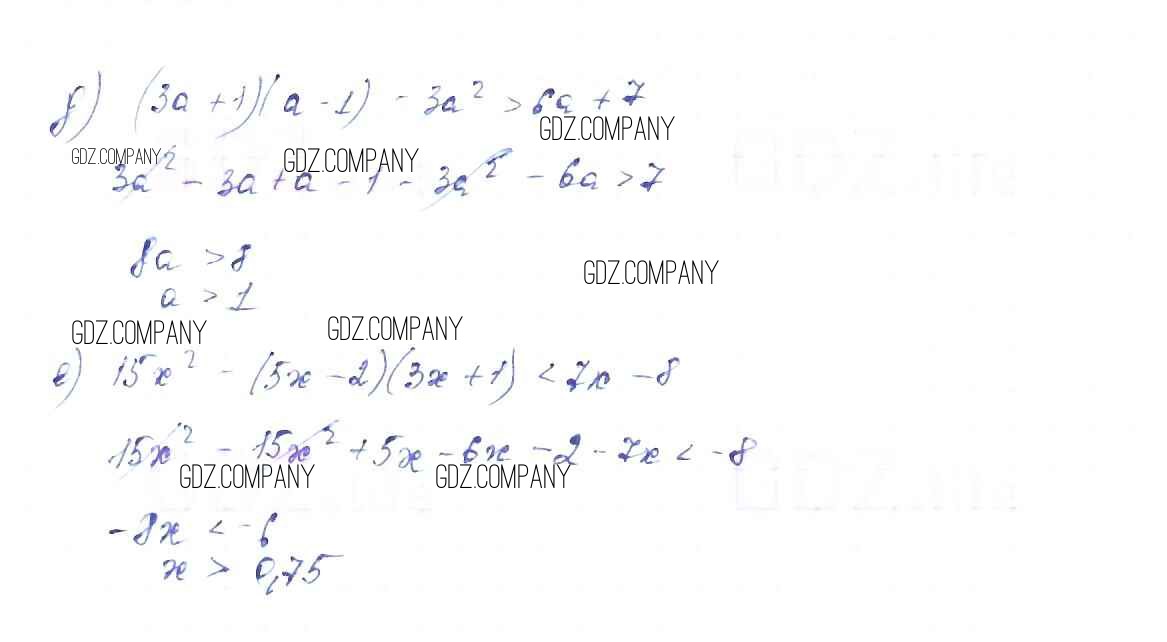 б) (3a + 1)(a - 1) - 3a² > 6a + 7
GDZ.COMPANY
GDZ.COMPANY GDZ.COMPANY
3a² - 3a + a - 1 - 3a² - 6a > 7
8a > 8
GDZ.COMPANY
a > 1
GDZ.COMPANY GDZ.COMPANY
е) 15x² - (5x - 2)(3x + 1) < 7x - 8
15x² - 15x² + 5x - 6x - 2 - 7x < -8
GDZ.COMPANY GDZ.COMPANY
-8x < -6
x > 0,75